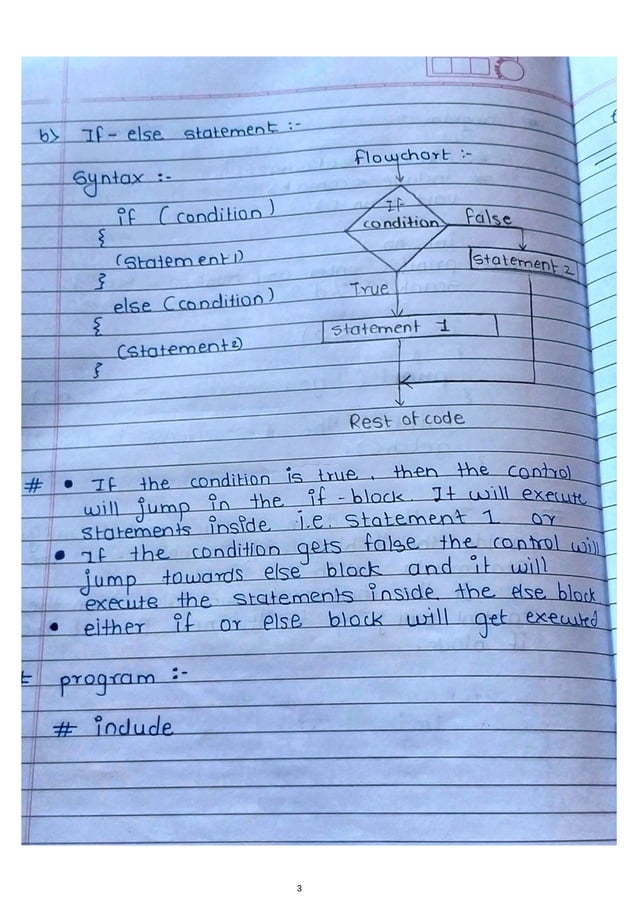 b) If - else statement :-
flowchart :-
Syntax :-
if (condition)
{
(Statement 1)
}
else (condition)
{
(Statement 2)
}
If
condition
false
Statement 2
True
Statement 1
Rest of code
# • If the condition is true, then the control
will jump in the if - block. It will execute
statements inside i.e. statement 1 or
• If the condition gets false the control will
jump towards else block and it will
execute the statements inside the else block
• either if or else block will get executed
program :-
# include
3